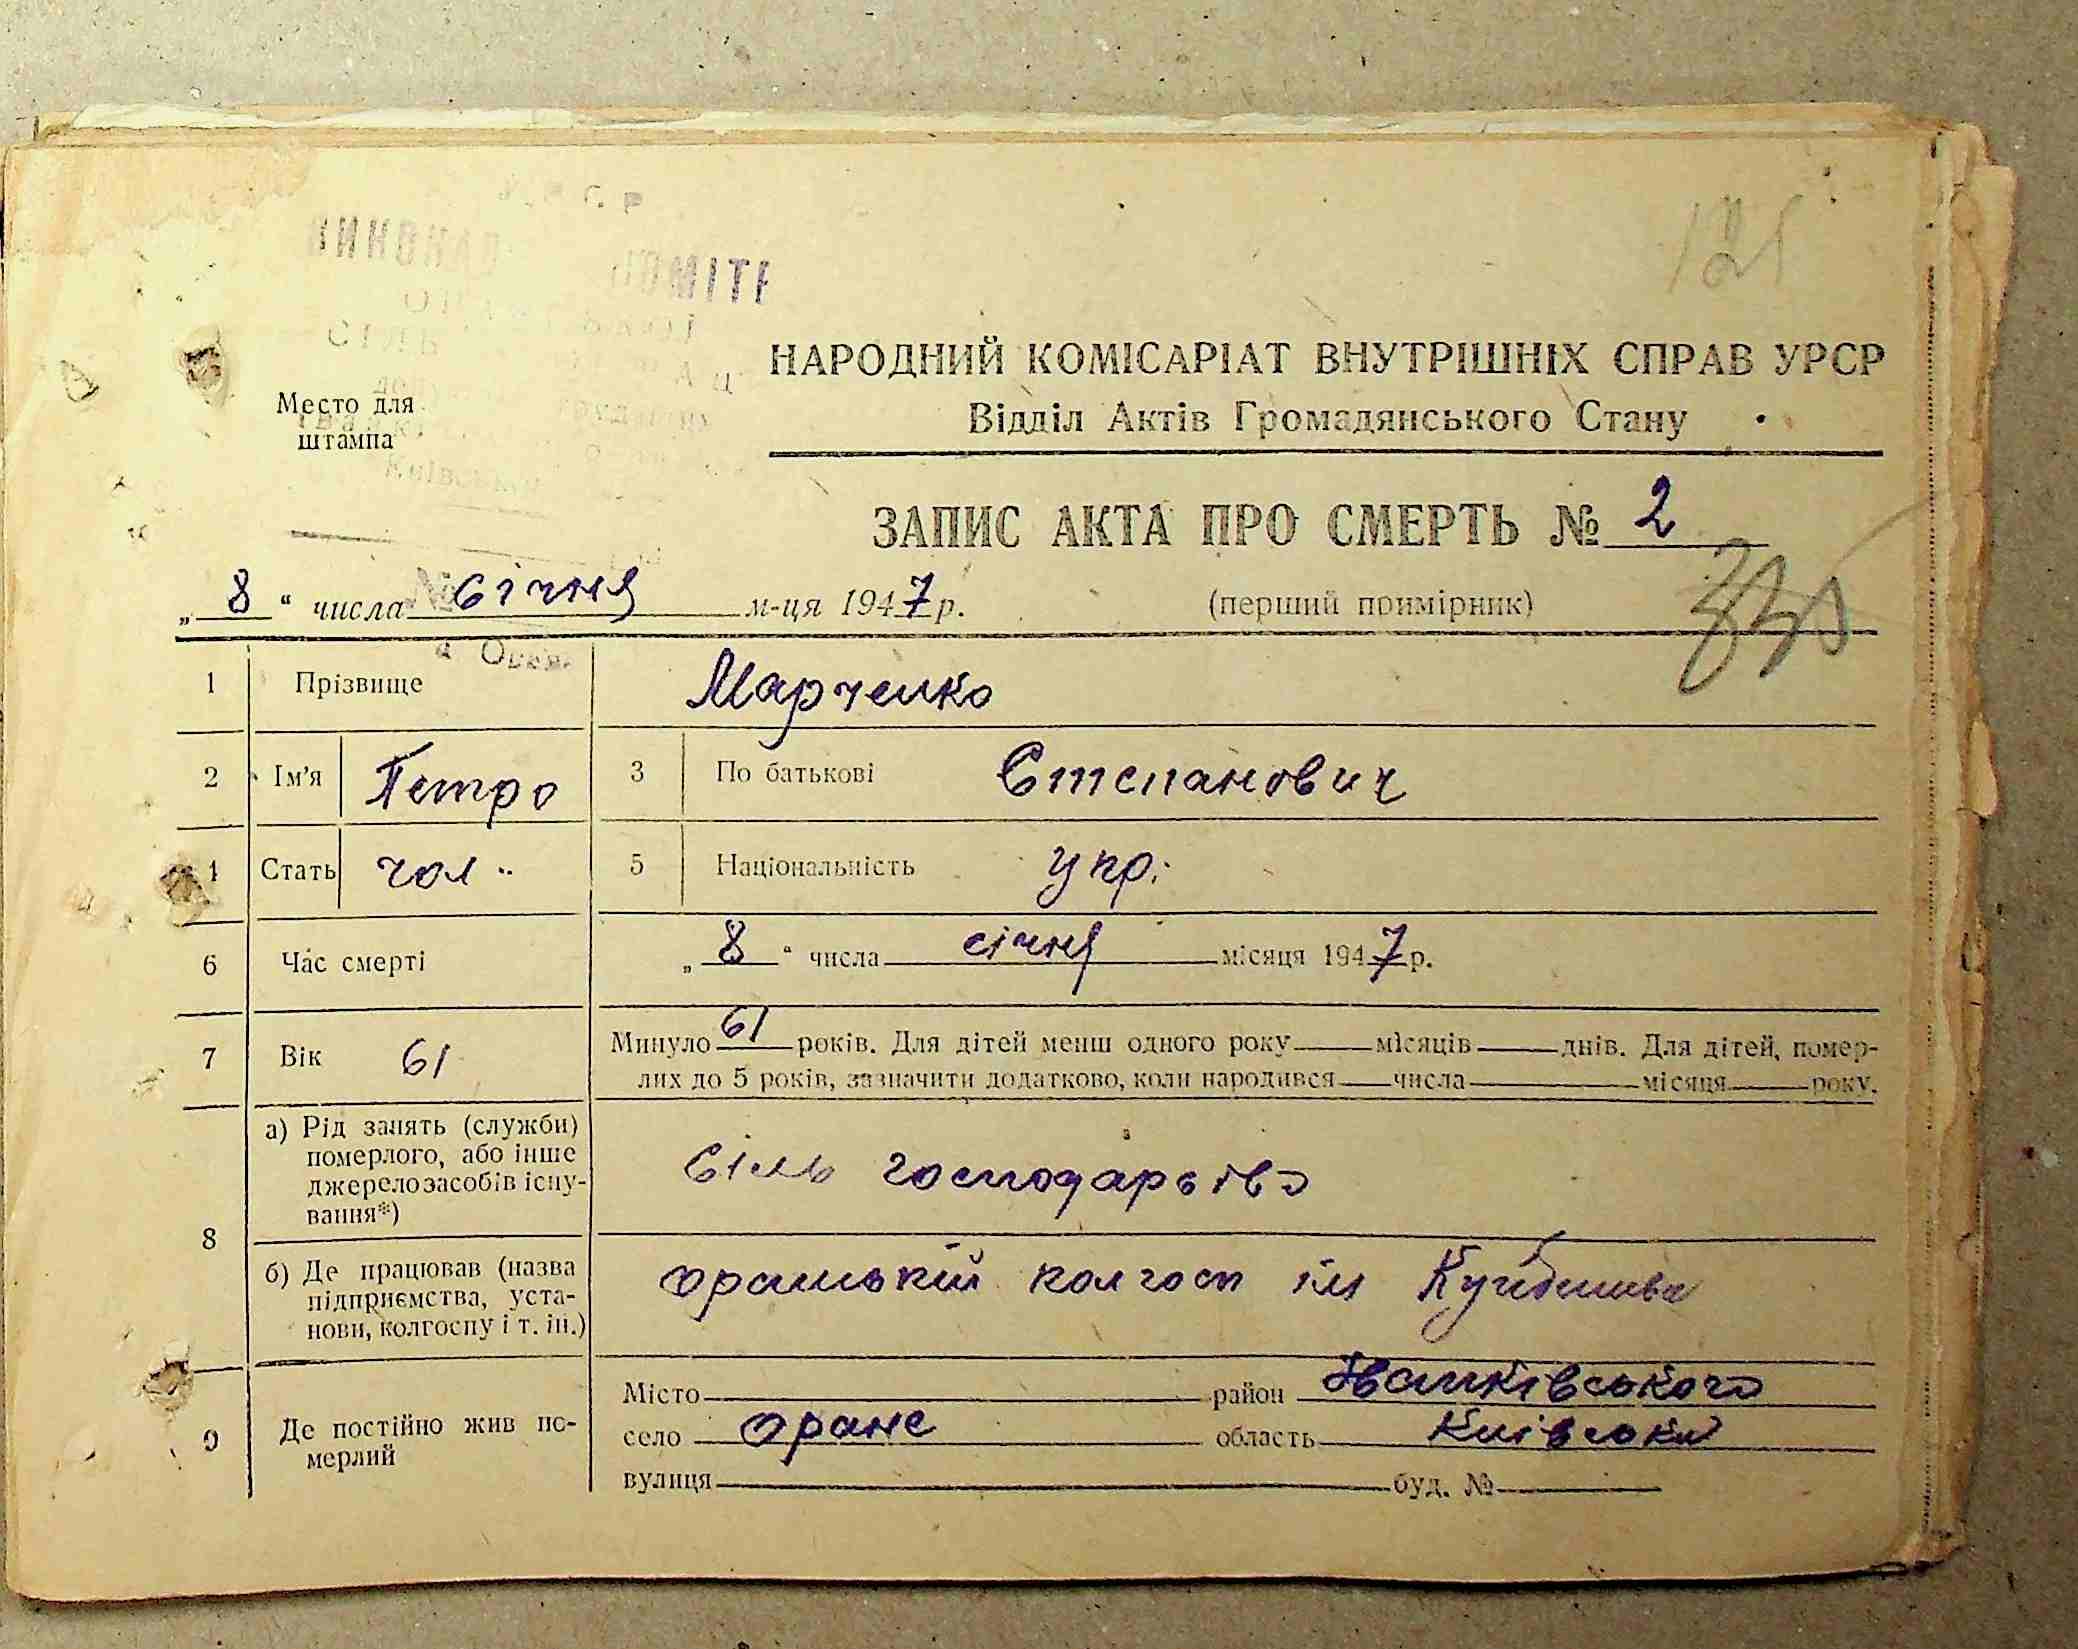 НАРОДНИЙ КОМІСАРІАТ ВНУТРІШНІХ СПРАВ УРСР
Відділ Актів Громадянського Стану
Место для
штампа
ЗАПИС АКТА ПРО СМЕРТЬ № 2
„ 8 “ числа січня м-ця 1947 р.
(перший примірник)
1 Прізвище Марченко
2 Ім'я Петро 3 По батькові Степанович
4 Стать чол 5 Національність укр.
6 Час смерті „ 8 “ числа січня місяця 1947 р.
7 Вік 61 Минуло 61 років. Для дітей менш одного року місяців днів. Для дітей, помер-
лих до 5 років, зазначити додатково, коли народився числа місяця року.
8 а) Рід занять (служби)
померлого, або інше
джерело засобів існу-
вання*)
сіль господарьтво
б) Де працював (назва
підприємства, уста-
нови, колгоспу і т. ін.)
оранський колгосп ім Куйбишева
9 Де постійно жив по-
мерлий
Місто район Іванківського
село Оране область Київська
вулиця буд. №